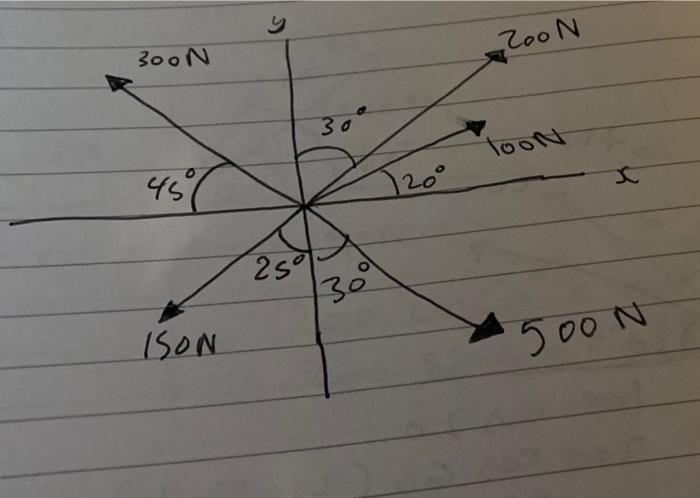 y
300N
200N
30°
100N
45°
20°
x
25°
30°
150N
500N